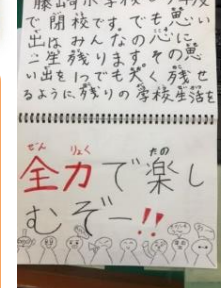 で閉校です。でも思い
出はみんなの心に
一生残ります。その思
い出を1つでも多く残せ
るように、残りの学校生活を
ぜん りょく たの
全力で楽し
むぞー!!